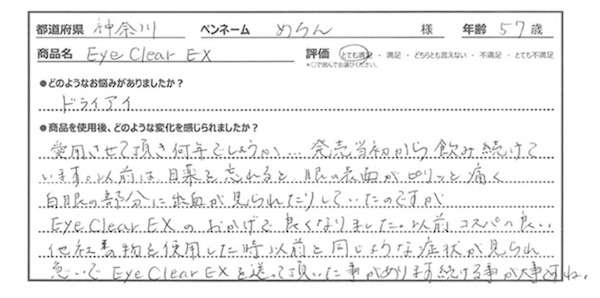 都道府県 神奈川 ペンネーム めらん 様 年齢 57歳
商品名 Eye Clear EX 評価 とても満足 ・ 満足 ・ どちらとも言えない ・ 不満足 ・ とても不満足
*○で囲んでお選びください。
●どのようなお悩みがありましたか?
ドライアイ
●商品を使用後、どのような変化を感じられましたか?
愛用させて頂き何年でしょうか… 発売当初から飲み続けて
います。以前は目薬を忘れると 眼の表面がピリッと痛く
白眼の部分に出血が見られたりしていたのですが
Eye Clear EX のおかげで良くなりました。以前 コスパの良い
他社の物を使用した時以前と同じような症状が見られ
急いで Eye Clear EX を送って頂いた事があります続ける事が大事ですね。